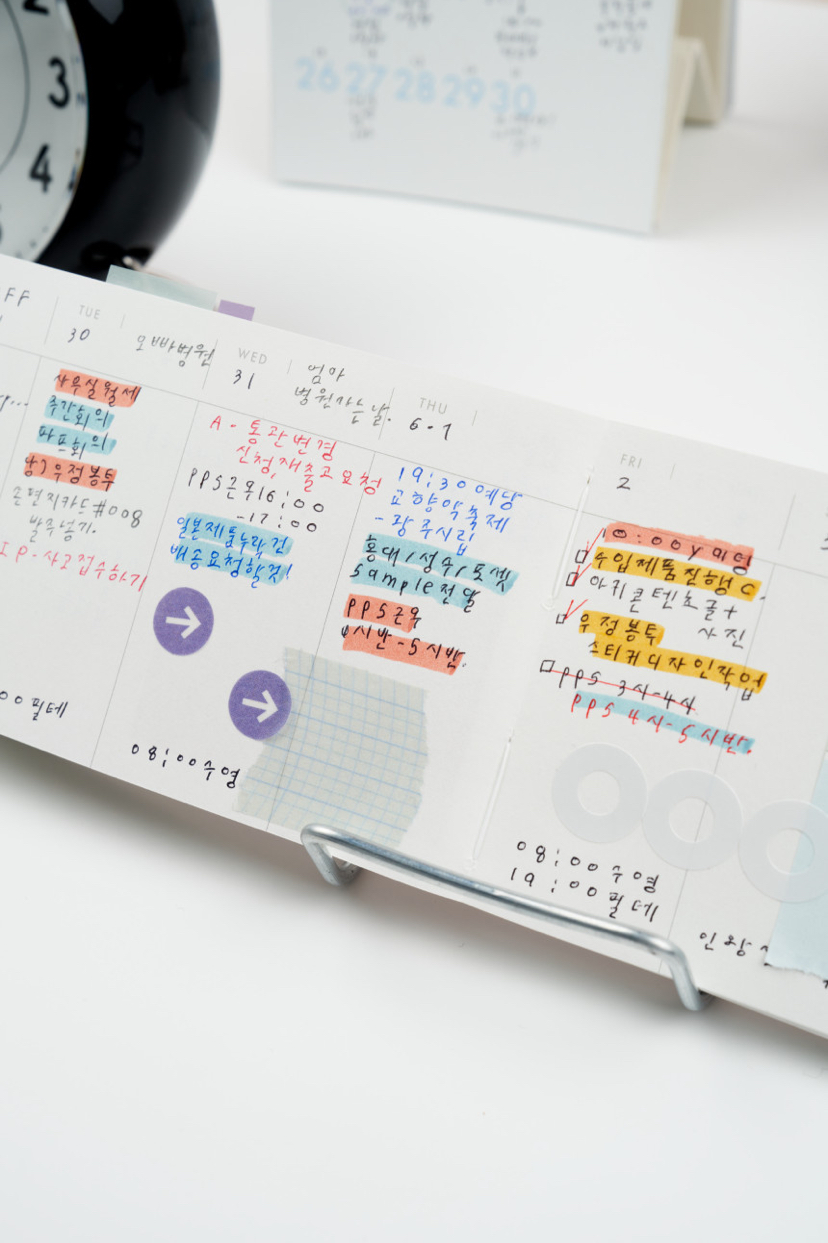 3
4
26 27 28 29 30
FF
TUE
30
오빠병원
사무실월세
주간회의
파프회의
우정봉투
은면지카드#008
발주넣기.
IP-사고접수하기
00 필테
WED
31
엄마
병원가는날.
A - 통관변경
신청,재출고요청
PPS근무16:00
-17:00
일본제품누락건
배송요청할것!
08:00수영
THU
6.1
19:30예당
교향악축제
-광주시립
홍대/성수/도셀
sample전달
PPS근무
4시반-5시반.
FRI
2
10:00y미팅
수입제품진행C.
아키콘텐츠글+
사진
우정봉투
스티커디자인작업
PPS 3시-4시
PPS 4시-5시반.
08:00수영
19:00필테